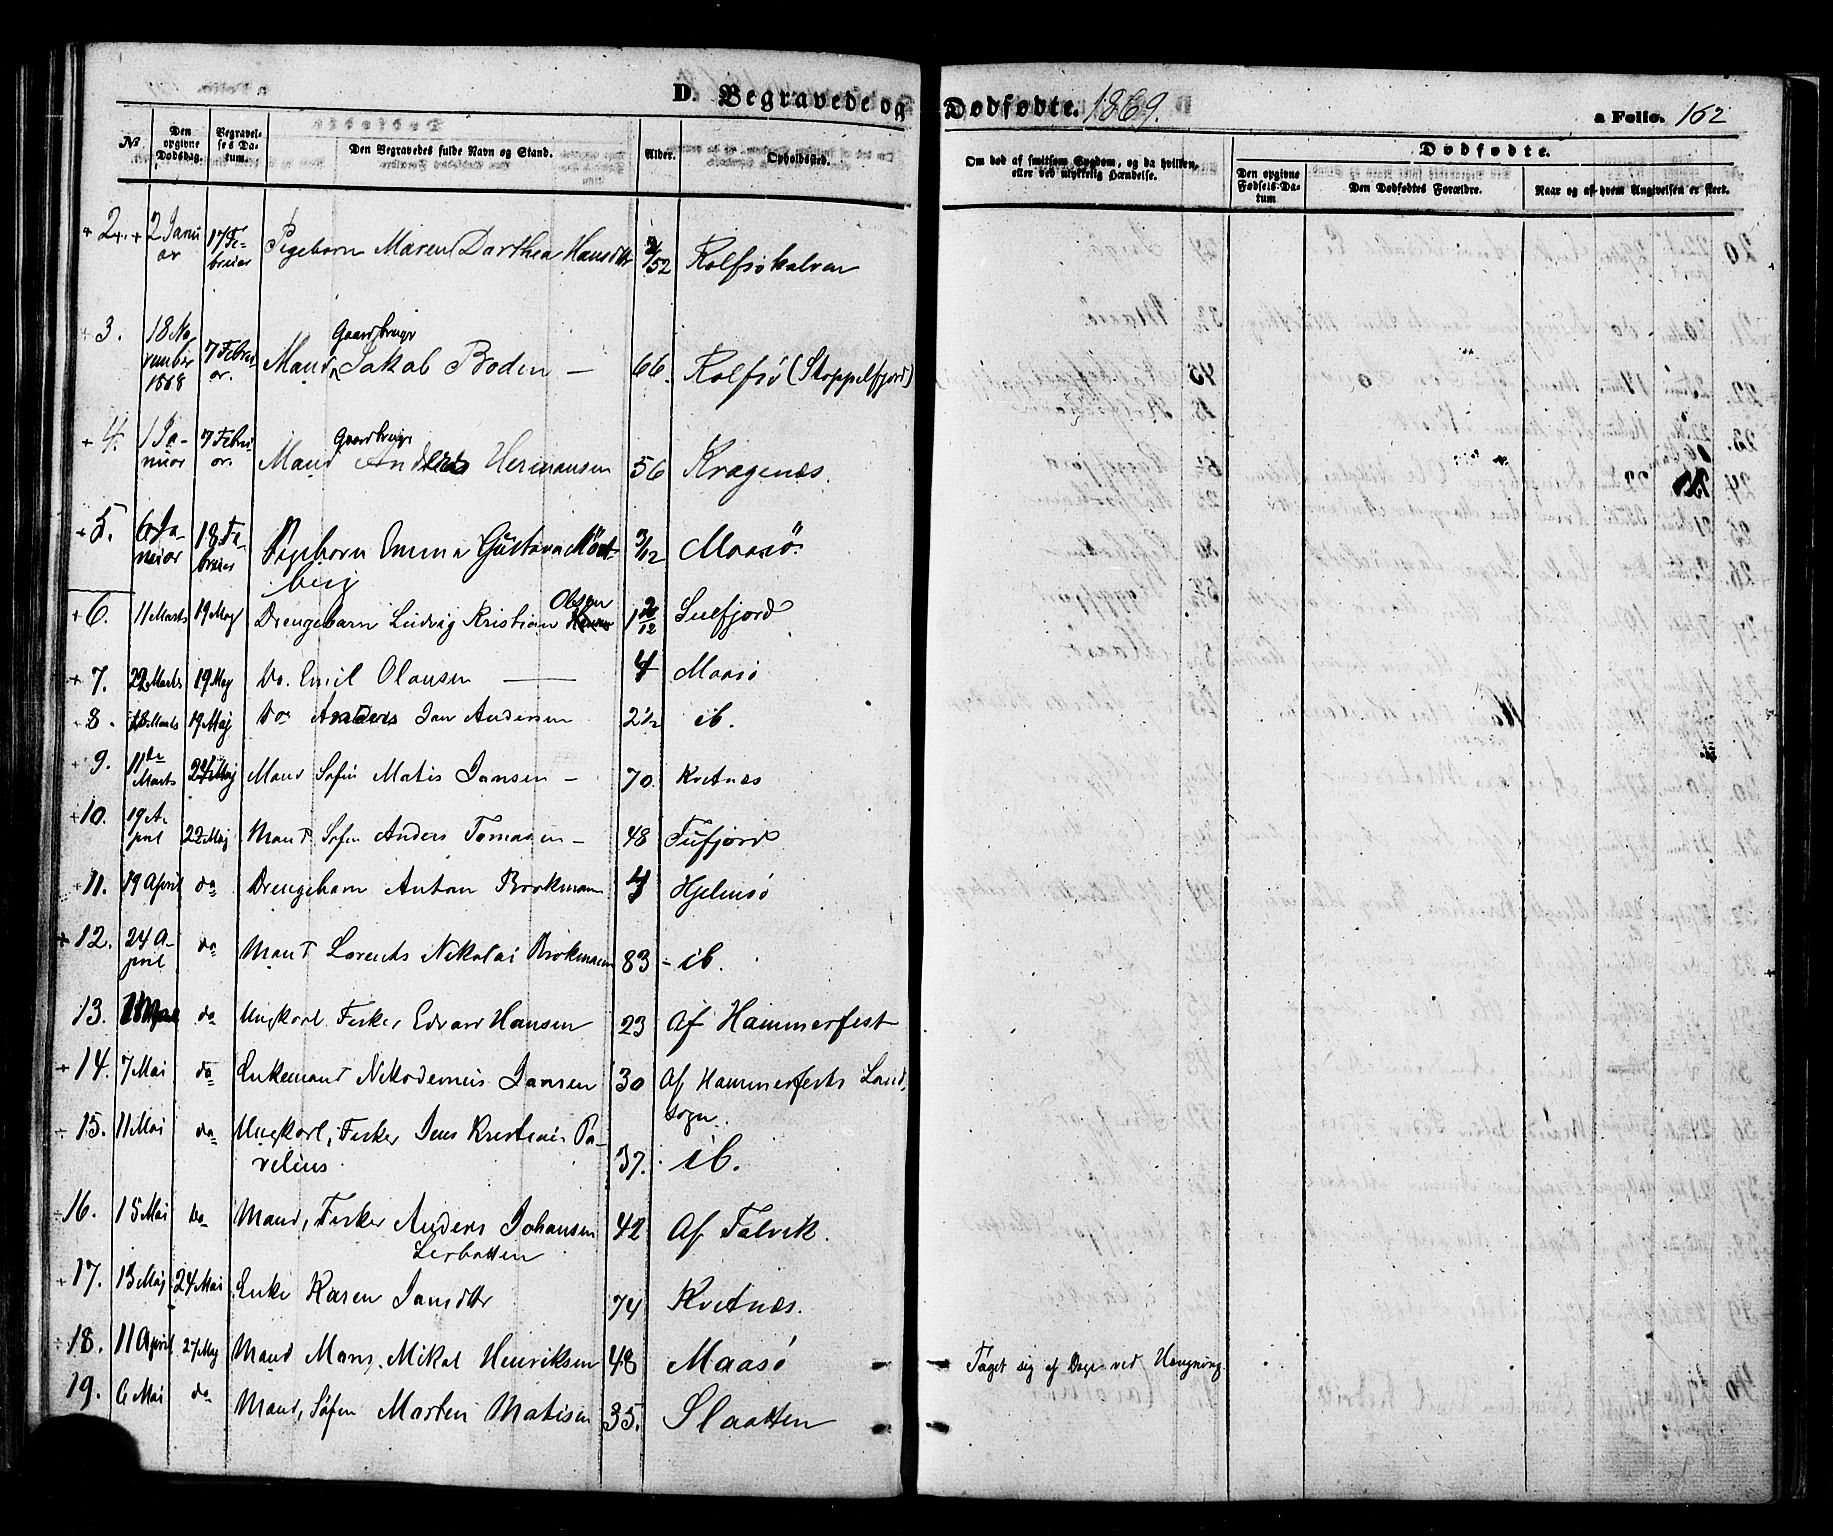 D. Begravede og Dødfødte. 1869.
a Folio. 162
No. Den opgivne Dødsdag. Begravelses Datum. Den Begravedes fulde Navn og Stand. Alder. Opholdssted.
Om død af smitsom Sygdom, og da hvilken, eller ved ulykkelig Hændelse.
Dødfødte.
Den opgivne Fødsels-Datum Den Dødfødtes Forældre. Naar og af hvem Angivelsen er skeet.
+ 2. + 2 Januar 17 Februar Pigebarn Maren Dorthea Hansdtr 3/52 Rolfsøhalvøen
3. 18 November 1868 7 Februar. Mand, Gaardbruger Jakob Boden — 66. Rolfsø (Stoppelfjord)
+ 4. 1 Januar 7 Februar. Mand Gaardbruger Anders Hermansen 56 Kragenæs.
+ 5. 6 Januar 18 Februar Pigebarn Emma Gustava Mørtberg 3/12 Maasø.
+ 6. 11 Marts 19 Maj Drengebarn Ludvig Kristian Olsen 1 2/12 Snefjord
+ 7. 22 Marts 19 Maj Do. Emil Olausen — 4 Maasø
+ 8. 28 Marts 19 Maj Do Anders Jan Andersen 2 1/2 ib.
9. 11de Marts 22 Maj Mand Søfin Matis Jansen — 70. Kvitnæs
+ 10. 19 April 22 Maj Mand Søfin Anders Tomassen — 48 Tufjord
+ 11. 19 April do Drengebarn Anton Brokmann 4 Hjelmsø
+ 12. 24 April do Mand Lorents Nikolai Brokmann 83 — ib.
13. do Ungkarl Fisker Edvard Hansen 23 Af Hammerfest
+ 14. 7 Mai do Enkemand Nikodemus Jansen 30 Af Hammerfests Landsogn.
15. 11 Mai do Ungkarl, Fisker Jens Kristian Pavelius. 37. ib.
16. 15 Mai do Mand, Fisker Anders Johansen Lerbotten 42 Af Talvik.
17. 13 Maj 24 Mai Enke Karen Jansdtr 74 Kvitnæs.
18. 11 April 27 Maj Mand Mons Mikal Henriksen 48 Maasø Taget sig af Dage ved Hængning
19. 6 Mai do Mand, Søfin Morten Matisen 35. Slaatten